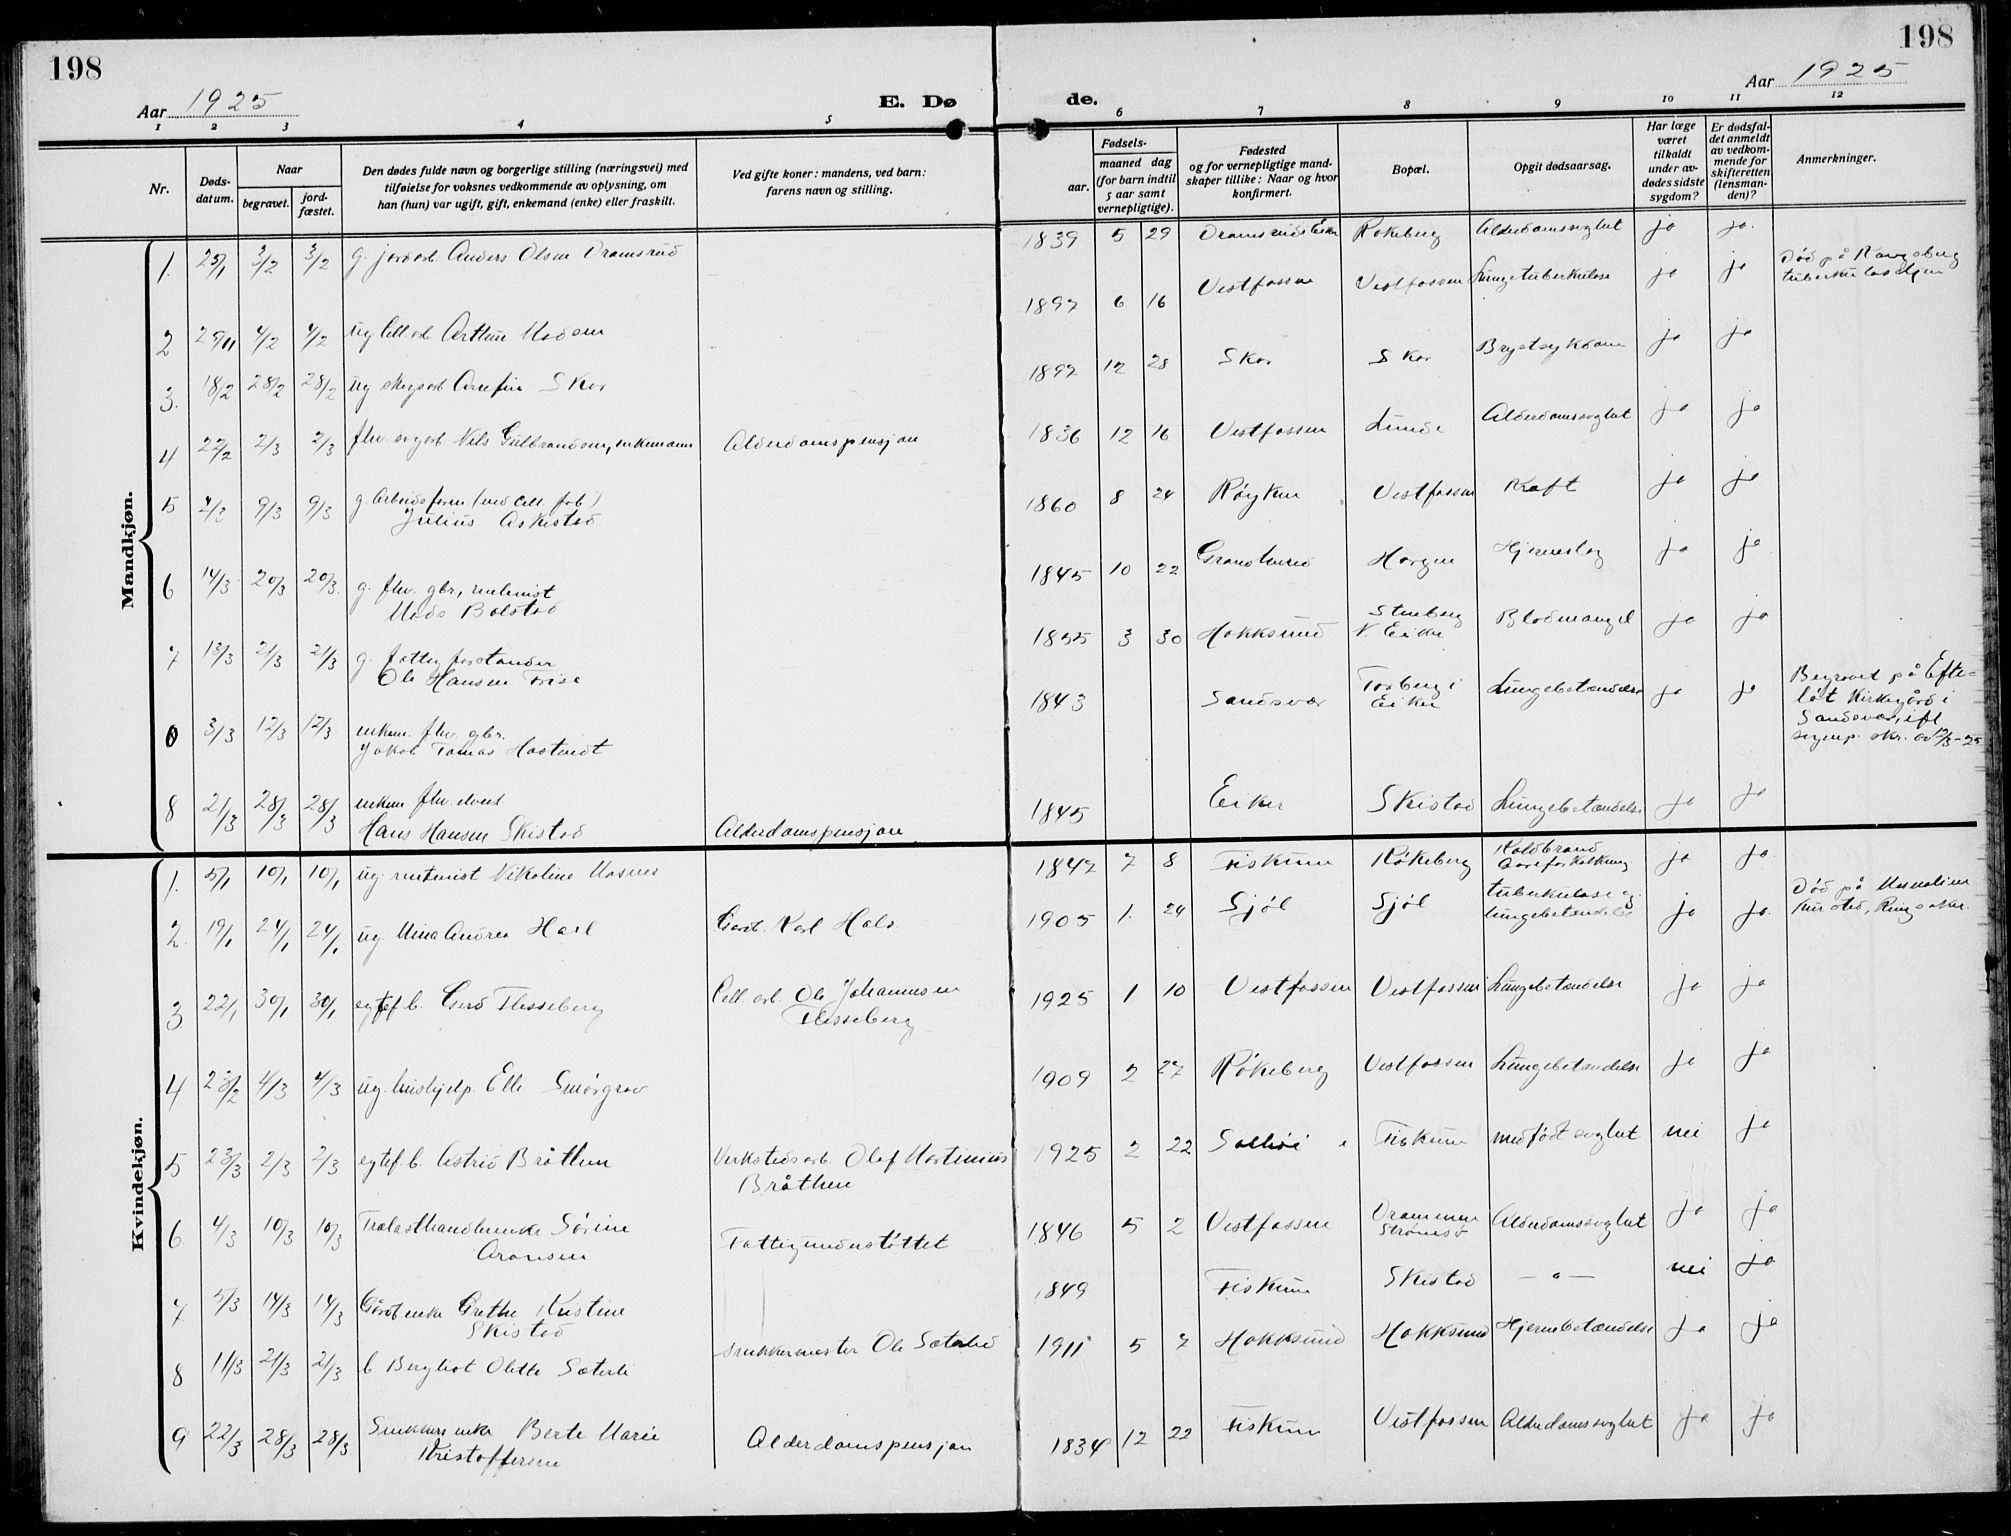 198
198
Aar 1925
E. Dø
de.
Aar 1925
1 2 3 4 5 6 7 8 9 10 11 12
Nr.
Døds-
datum.
Naar
begravet.
jord-
fæstet.
Den dødes fulde navn og borgerlige stilling (næringsvei) med
tilføielse for voksnes vedkommende av oplysning, om
han (hun) var ugift, gift, enkemand (enke) eller fraskilt.
Ved gifte koner: mandens, ved barn:
farens navn og stilling.
Fødsels-
aar.
maaned dag
(for barn indtil
5 aar samt
vernepligtige).
Fødested
og for vernepligtige mand-
skaper tillike: Naar og hvor
konfirmert.
Bopæl.
Opgit dødsaarsag.
Har læge
været
tilkaldt
under av-
dødes sidste
sygdom?
Er dødsfal-
det anmeldt
av vedkom-
mende for
skifteretten
(lensman-
den)?
Anmerkninger.
Mandkjøn.
1. 25/1 3/2 3/2 g. jordarb. Anders Olsen Dramsrud 1839 5 29 Dramsrud Eiker Rokeberg Alderdomssvaghet ja ja.
2 25/11 4/2 4/2 ug Cell. arb. Arthur Madsen 1897 6 16 Vestfossen Vestfossen Lungetuberkulose ja ja Død på Kongsberg
tuberkulosehjem
3. 18/2 28/2 28/2 ug skogsarb. Arnfin Skar 1897 12 28 Skar Skar Brystsykdom ja ja
4 22/2 2/3 2/3 fhv. Nils Gulbrandsen, enkemann Alderdomspensjon 1836 12 16 Vestfossen Lunde Alderdomssvaghet ja ja
5 2/3 9/3 9/3 g. Arbeidsform. (ved Cell. fab.)
Julius Askestad 1860 8 24 Røyken Vestfossen Kræft ja ja
6 14/3 20/3 20/3. g. fhv. gbr,
Mads Bolstad 1845 10 22 Horgen Hjerneslag ja ja
7 13/3 21/3 21/3 g. fattigforstander
Ole Hansen 1855 3 30 Hokksund Stenberg
N. Eiker Blodmangel ja ja
0 3/3 12/3 12/3 enkem. fhv. gbr.
Jakob Tomas Hostvedt 1843 Sandsvær i
Eiker Lungebetændelse ja ja Begravet på Efte-
løt Kirkegård i
Sandsvær ifl.
sognep. skr. av 12/3-25
8 21/3 28/3 28/3 enkem fhv.
Hans Hansen Skistad Alderdomspensjon 1845 Eiker Skistad Lungebetændelse ja ja
Kvindekjøn.
1. 5/1 10/1 10/1 ug. Nikoline Mosnes 1847 7 8 Fiskum Røkeberg Koldbrand
Aareforkalkning ja ja.
2. 19/1 24/1 24/1 ug. Mina Andrea Hasl Gårdb. Karl Hals 1905 1. 24 Sjøl Sjøl tuberkulose og
lungebetændelse ja ja. Død på Mesnalien
kursted, Ringsaker.
3 22/1 30/1 30/1 egtef. b. Gerd Flesseberg Cell. arb. Ole Johannesen
Flesseberg 1925 1 10 Vestfossen Vestfossen Lungebetændelse ja ja
4 4/3 4/3 ug. hushjelp. Elle Smørgrav 1909 2 27 Røkeberg Vestfossen Lungebetændelse ja ja
5 23/3 2/3 2/3 egtef. b. Astrid Bråthen Verkstedsarb. Olaf Martinius
Bråthen 1925 2 22 Fiskum medfødt svaghet nei ja
6. 4/3 10/3 10/3 Trælasthandlerenke Sørine
Aronsen Fattigunderstøttet 1846 5 2 Vestfossen Drammen
Strømsø Alderdomssvaghet ja ja
7 5/3 14/3 14/3 Gårdb. enke Grethe Kristine
Skistad 1849 Fiskum Skistad — " — nei ja
8 11/3 21/3 21/3 b. Bergliot Olette Sæterli snekkermester Ole Sæterli 1911 5 7 Hokksund Hokksund Hjernebetændelse ja ja
9 22/3 28/3 28/3 Snekkers enke Berte Marie
Kristoffersen Alderdomspensjon 1834 12 22 Fiskum Vestfossen Alderdomssvaghet ja ja